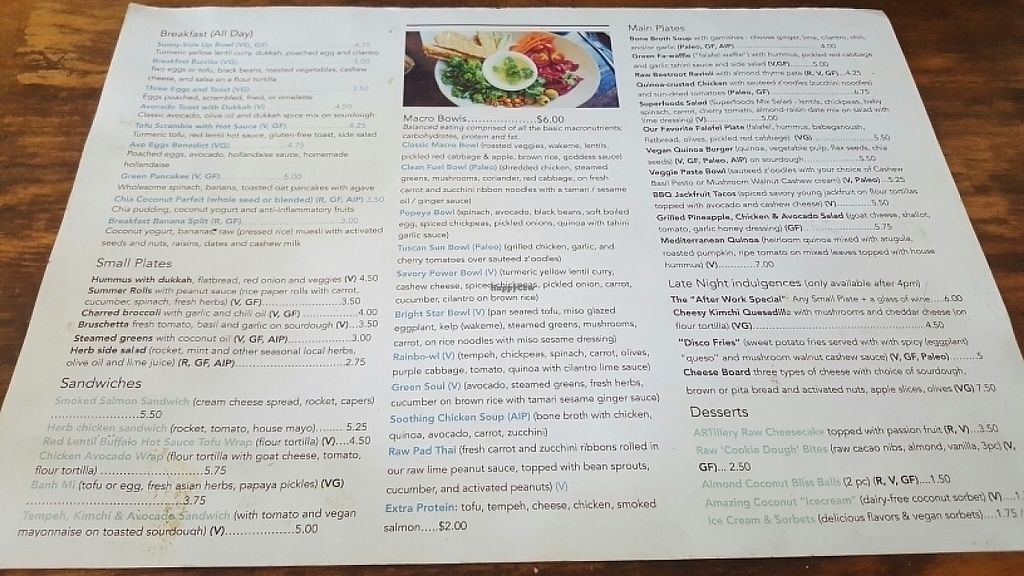 Breakfast (All Day)
Sunny-Side Up Bowl (VG, GF) 4.75
Turmeric yellow lentil curry, dukkah, poached egg and cilantro
Breakfast Burrito (VG) 5.00
Two eggs or tofu, black beans, roasted vegetables, cashew
cheese, and salsa on a flour tortilla
Three Eggs and Toast (VG) 3.50
Eggs poached, scrambled, fried, or omelette
Avocado Toast with Dukkah (V) 4.50
Classic avocado, olive oil and dukkah spice mix on sourdough
Tofu Scramble with Hot Sauce (V, GF) 4.25
Turmeric tofu, red lentil hot sauce, gluten-free toast, side salad
Avo Eggs Benedict (VG) 4.75
Poached eggs, avocado, hollandaise sauce, homemade
hollandaise
Green Pancakes (V, GF) 5.00
Wholesome spinach, banana, toasted oat pancakes with agave
Chia Coconut Parfait (whole seed or blended) (R, GF, AIP) 3.50
Chia pudding, coconut yogurt and anti-inflammatory fruits
Breakfast Banana Split (R, GF) 3.00
Coconut yogurt, bananas, raw (pressed rice) muesli with activated
seeds and nuts, raisins, dates and cashew milk
Small Plates
Hummus with dukkah, flatbread, red onion and veggies (V) 4.50
Summer Rolls with peanut sauce (rice paper rolls with carrot,
cucumber, spinach, fresh herbs) (V, GF)....3.50
Charred broccoli with garlic and chili oil (V, GF) ....4.00
Bruschetta fresh tomato, basil and garlic on sourdough (V)...3.50
Steamed greens with coconut oil (V, GF, AIP)....3.00
Herb side salad (rocket, mint and other seasonal local herbs,
olive oil and lime juice) (R, GF, AIP)....2.75
Sandwiches
Smoked Salmon Sandwich (cream cheese spread, rocket, capers)
....5.50
Herb chicken sandwich (rocket, tomato, house mayo)........ 5.25
Red Lentil Buffalo Hot Sauce Tofu Wrap (flour tortilla) (V)....4.50
Chicken Avocado Wrap (flour tortilla with goat cheese, tomato,
flour tortilla) ....5.75
Banh Mi (tofu or egg, fresh asian herbs, papaya pickles) (VG)
....3.75
Tempeh, Kimchi & Avocado Sandwich (with tomato and vegan
mayonnaise on toasted sourdough) (V)....5.00
Macro Bowls....$6.00
Balanced eating comprised of all the basic macronutrients:
carbohydrates, protein and fat.
Classic Macro Bowl (roasted veggies, wakeme, lentils,
pickled red cabbage & apple, brown rice, goddess sauce)
Clean Fuel Bowl (Paleo) (shredded chicken, steamed
greens, mushrooms, coriander, red cabbage, on fresh
carrot and zucchini ribbon noodles with a tamari / sesame
oil / ginger sauce)
Popeye Bowl (spinach, avocado, black beans, soft boiled
egg, spiced chickpeas, pickled onions, quinoa with tahini
garlic sauce)
Tuscan Sun Bowl (Paleo) (grilled chicken, garlic, and
cherry tomatoes over sauteed z'oodles)
Savory Power Bowl (V) (turmeric yellow lentil curry,
cashew cheese, spiced chickpeas, pickled onion, carrot,
cucumber, cilantro on brown rice)
HappyCow
Bright Star Bowl (V) (pan seared tofu, miso glazed
eggplant, kelp (wakame), steamed greens, mushrooms,
carrot, on rice noodles with miso sesame dressing)
Rainbo-wl (V) (tempeh, chickpeas, spinach, carrot, olives,
purple cabbage, tomato, quinoa with cilantro lime sauce)
Green Soul (V) (avocado, steamed greens, fresh herbs,
cucumber on brown rice with tamari sesame ginger sauce)
Soothing Chicken Soup (AIP) (bone broth with chicken,
quinoa, avocado, carrot, zucchini)
Raw Pad Thai (fresh carrot and zucchini ribbons rolled in
our raw lime peanut sauce, topped with bean sprouts,
cucumber, and activated peanuts) (V)
Extra Protein: tofu, tempeh, cheese, chicken, smoked
salmon.....$2.00
Main Plates
Bone Broth Soup with garnishes - choose ginger, lime, cilantro, chili,
and/or garlic (Paleo, GF, AIP)....4.00
Green Fa-waffle ("falafel waffle") with hummus, pickled red cabbage
and garlic tahini sauce and side salad (V,GF)....5.00
Raw Beetroot Ravioli with almond thyme pate (R, V, GF)...4.25
Quinoa-crusted Chicken with sauteed z'oodles (zucchini noodles)
and sun-dried tomatoes (Paleo, GF) 6.75
Superfoods Salad (Superfoods Mix Salad - lentils, chickpeas, baby
spinach, carrot, cherry tomato, almond-raisin-date mix on salad with
lime dressing) (V)....5.00
Our Favorite Falafel Plate (falafel, hummus, babaganoush,
flatbread, olives, pickled red cabbage) (VG)....5.50
Vegan Quinoa Burger (quinoa, vegetable pulp, flax seeds, chia
seeds) (V, GF, Paleo, AIP) on sourdough....5.50
Veggie Pasta Bowl (sauteed z'oodles with your choice of Cashew
Basil Pesto or Mushroom Walnut Cashew cream) (V, Paleo)...5.25
BBQ Jackfruit Tacos (spiced savory young jackfruit on flour tortillas
topped with avocado and cashew cheese) (V)....5.50
Grilled Pineapple, Chicken & Avocado Salad (goat cheese, shallot,
tomato, garlic honey dressing) (GF)....5.75
Mediterranean Quinoa (heirloom quinoa mixed with arugula,
roasted pumpkin, ripe tomato on mixed leaves topped with house
hummus) (V)....7.00
Late Night indulgences (only available after 4pm)
The "After Work Special": Any Small Plate + a glass of wine.....6.00
Cheesy Kimchi Quesadilla with mushrooms and cheddar cheese (on
flour tortilla) (VG).... 4.50
"Disco Fries" (sweet potato fries served with with spicy (eggplant)
"queso" and mushroom walnut cashew sauce) (V, GF, Paleo)........5
Cheese Board three types of cheese with choice of sourdough,
brown or pita bread and activated nuts, apple slices, olives (VG) 7.50
Desserts
ARTillery Raw Cheesecake topped with passion fruit (R, V)...3.50
Raw 'Cookie Dough' Bites (raw cacao nibs, almond, vanilla, 3pc) (V,
GF)... 2.50
Almond Coconut Bliss Balls (2 pc) (R, V, GF)....1.50
Amazing Coconut "Icecream" (dairy-free coconut sorbet) (V)....1.
Ice Cream & Sorbets (delicious flavors & vegan sorbets)....1.75 /